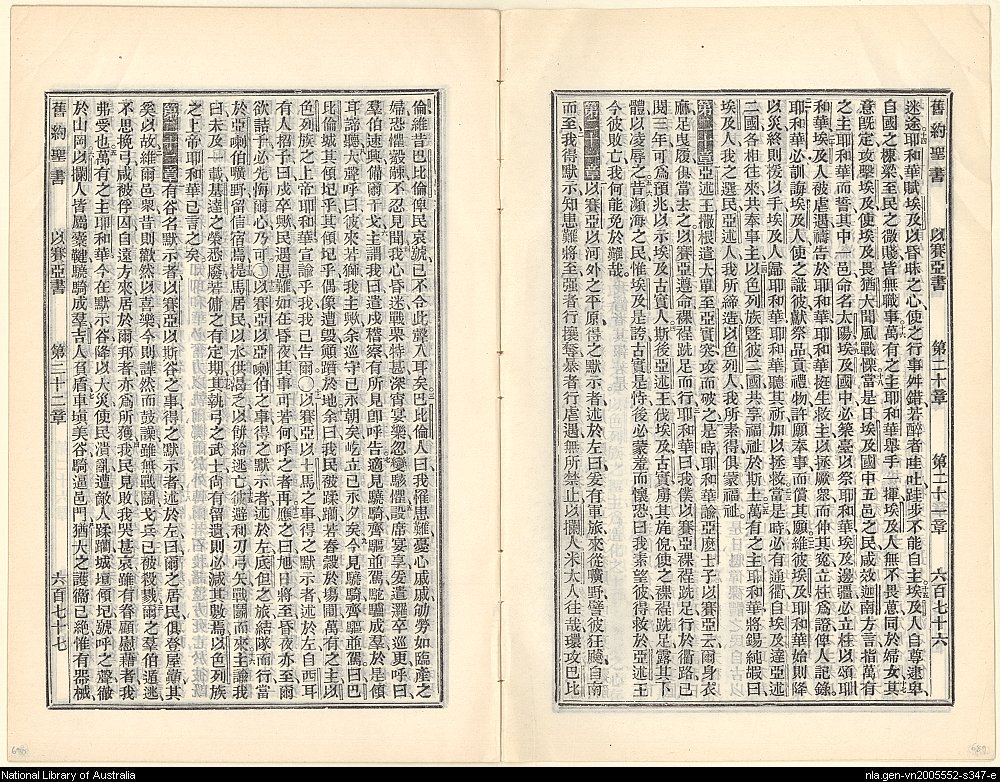 舊約聖書 以賽亞書 第二十章 第二十一章 六百七十六
迷途耶和華賦埃及以昏昧之心使之行事舛錯若醉者哇吐跬步不能自主埃及人自尊逮卑
自國之樑梁至民之微賤皆無職事萬有之主耶和華舉手一揮埃及人無不畏葸同於婦女其
意既定攻擊埃及使埃及畏猶大聞風戰慄當是日埃及國中五邑之民咸效迦南方言指萬有
之主耶和華而誓其中一邑命名太陽埃及國中必築臺以祭耶和華埃及邊疆必立柱以頌耶
和華埃及人被虐遇禱告於耶和華耶和華挺生救主以拯厥衆而伸其冤立柱爲證俾人記錄
耶和華必訓誨埃及人使之識彼獻祭品貢禮物許願奉事而償其願維彼埃及耶和華始則降
以災終則援以手埃及人歸耶和華耶和華聽其祈加以拯救當是時必有通衢自埃及達亞述
二國各相往來共奉事主以色列族暨彼二國共享福祉於斯土萬有之主耶和華將錫純嘏曰
埃及人我之選民亞述人我所締造以色列人我所素得俱蒙福祉
第二十章 亞述王撒根遣大單至亞實突攻而破之是時耶和華諭亞麼士子以賽亞云爾身衣
麻足曳履俱當去之以賽亞遵命裸裎跣足而行耶和華曰我僕以賽亞裸裎跣足行於衢路已
閱三年可爲預兆以示埃及古實人斯後亞述王伐埃及古實虜其旄倪使之裸裎跣足露其下
體以凌辱之昔瀕海之民惟埃及是誇古實是恃後必蒙羞而懷恐曰我素望彼得救於亞述王
今彼敗亡我何能免於難哉
第二十一章 以賽亞以河外之平原得之默示者述於左曰爰有軍旅來從曠野譬彼狂飈自南
而至我得默示知患難將至强者行攘奪暴者行虐遇無所禁止以攔人米太人往哉環攻巴比
倫維昔巴比倫俾民哀號已不合此聲入耳矣巴比倫人曰我罹患難憂心戚戚劬勞如臨產之
婦恐懼觳觫不忍見聞我心昏迷戰栗特甚深宵宴樂忽變駭懼設席宴享爰遣邏卒巡更呼曰
羣伯速興備爾干戈主謂我曰遣戍稽察有所見卽呼告適見驍騎齊驅並駕駝驢成羣於是傾
耳諦聽大聲呼曰彼來若獅我主歟余巡守已永朝矣屹立已永夕矣今見驍騎齊驅並駕曰巴
比倫城其傾圮乎其傾圮乎偶像遭毀顚躋於地余曰我民被蹂躪若舂穀於塲圃萬有之主以
色列族之上帝耶和華宣諭乎我我已告爾〇以賽亞以土馬之事得之默示者述於左自西耳
有人招予曰戍卒歟民遇患難如在昏夜其事可若何呼之者再應之曰旭日將至昏夜亦至爾
欲諮予必先悔爾心乃可〇以賽亞以亞喇伯之事得之默示者述於左底但之旅結隊而行當
於亞喇伯曠野留信宿焉提馬居民以水供渴乏以餅給逃亡彼避利刃弓矢戰鬬而來主諭我
曰未及一載基達之榮悉廢若傭之有定期其執弓之武士尚有留遺則必減其數焉以色列族
之上帝耶和華已言之矣
第二十二章 有谷名默示者以賽亞以斯谷之事得之默示者述於左曰爾之居民俱登屋諸其
奚以故維爾邑衆昔則歡然以喜樂今則譁然而鼓譟雖無戰鬬戈兵已被殺戮爾之羣伯遁逃
不思挽弓咸被俘囚自遠方來居於爾邦者亦爲所獲我民見敗我哭甚哀雖有眷顧慰藉者我
弗受也萬有之主耶和華今在默示谷降以大災使民潰亂遭敵人蹂躪城垣傾圮號呼之聲徹
於山岡以攔人皆屬櫜鞬驍騎成羣吉人負盾車塡美谷騎逼邑門猶大之護衞已絕惟有器械
舊約聖書 以賽亞書 第二十二章 六百七十七
National Library of Australia
nla.gen-vn2005552-s347-e